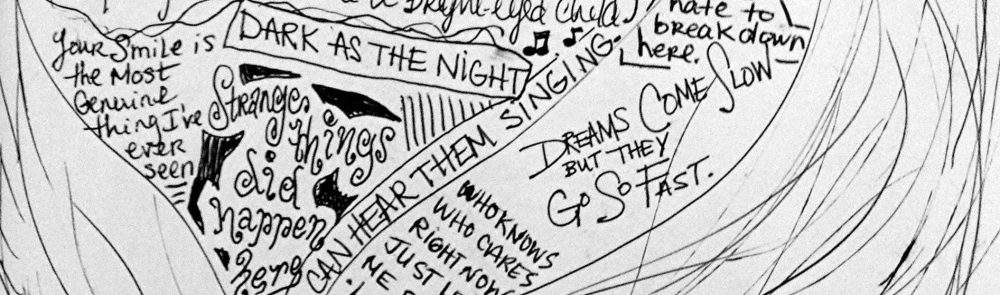 a Bright-eyed child.
hate to
break down
here.
Your smile is
the most
Genuine
thing I've
ever
seen
DARK AS THE NIGHT
Strange
things
did
happen
here
CAN HEAR THEM SINGING.
DREAMS COME SLOW
BUT THEY
GO SO FAST.
WHO KNOWS
WHO CARES
RIGHT NOW
JUST
ME